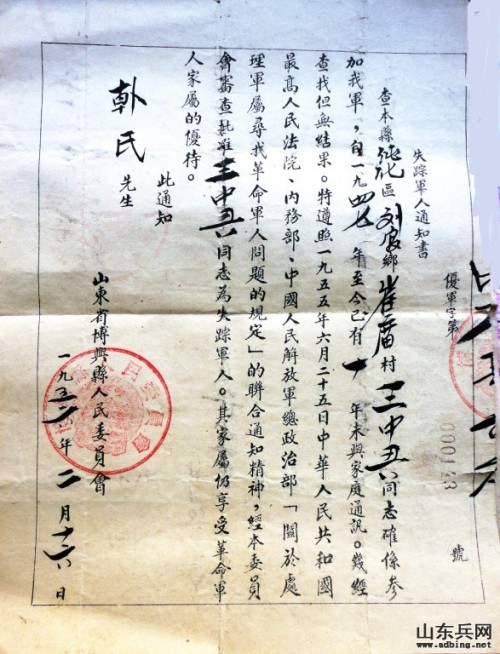 失踪軍人通知書
優軍字第 000133 號
查本縣純化區刘家鄉崔廣村王中五同志確係参
加我軍，自一九四七年至今已有十年未與家庭通訊。幾經
查找但無結果。特遵照一九五五年六月二十五日中華人民共和國
最高人民法院、內務部、中國人民解放軍總政治部「關於處
理軍屬尋找革命軍人問題的規定」的聯合通知精神，經本委員
會審查批准王中五同志為失踪軍人。其家屬仍享受革命軍
人家屬的優待。
此通知
氏先生
山東省博興縣人民委員會
一九五年二月十六日
山东兵网
www.adbing.net